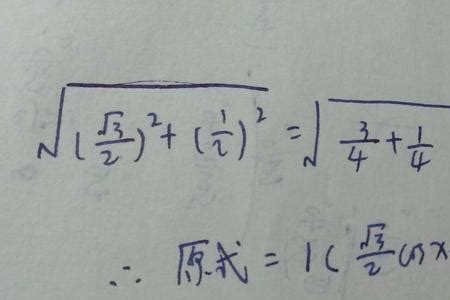 √((√3/2)² + (1/2)²) = √(3/4 + 1/4
∴ 原式 = 1( √3/2 cos x